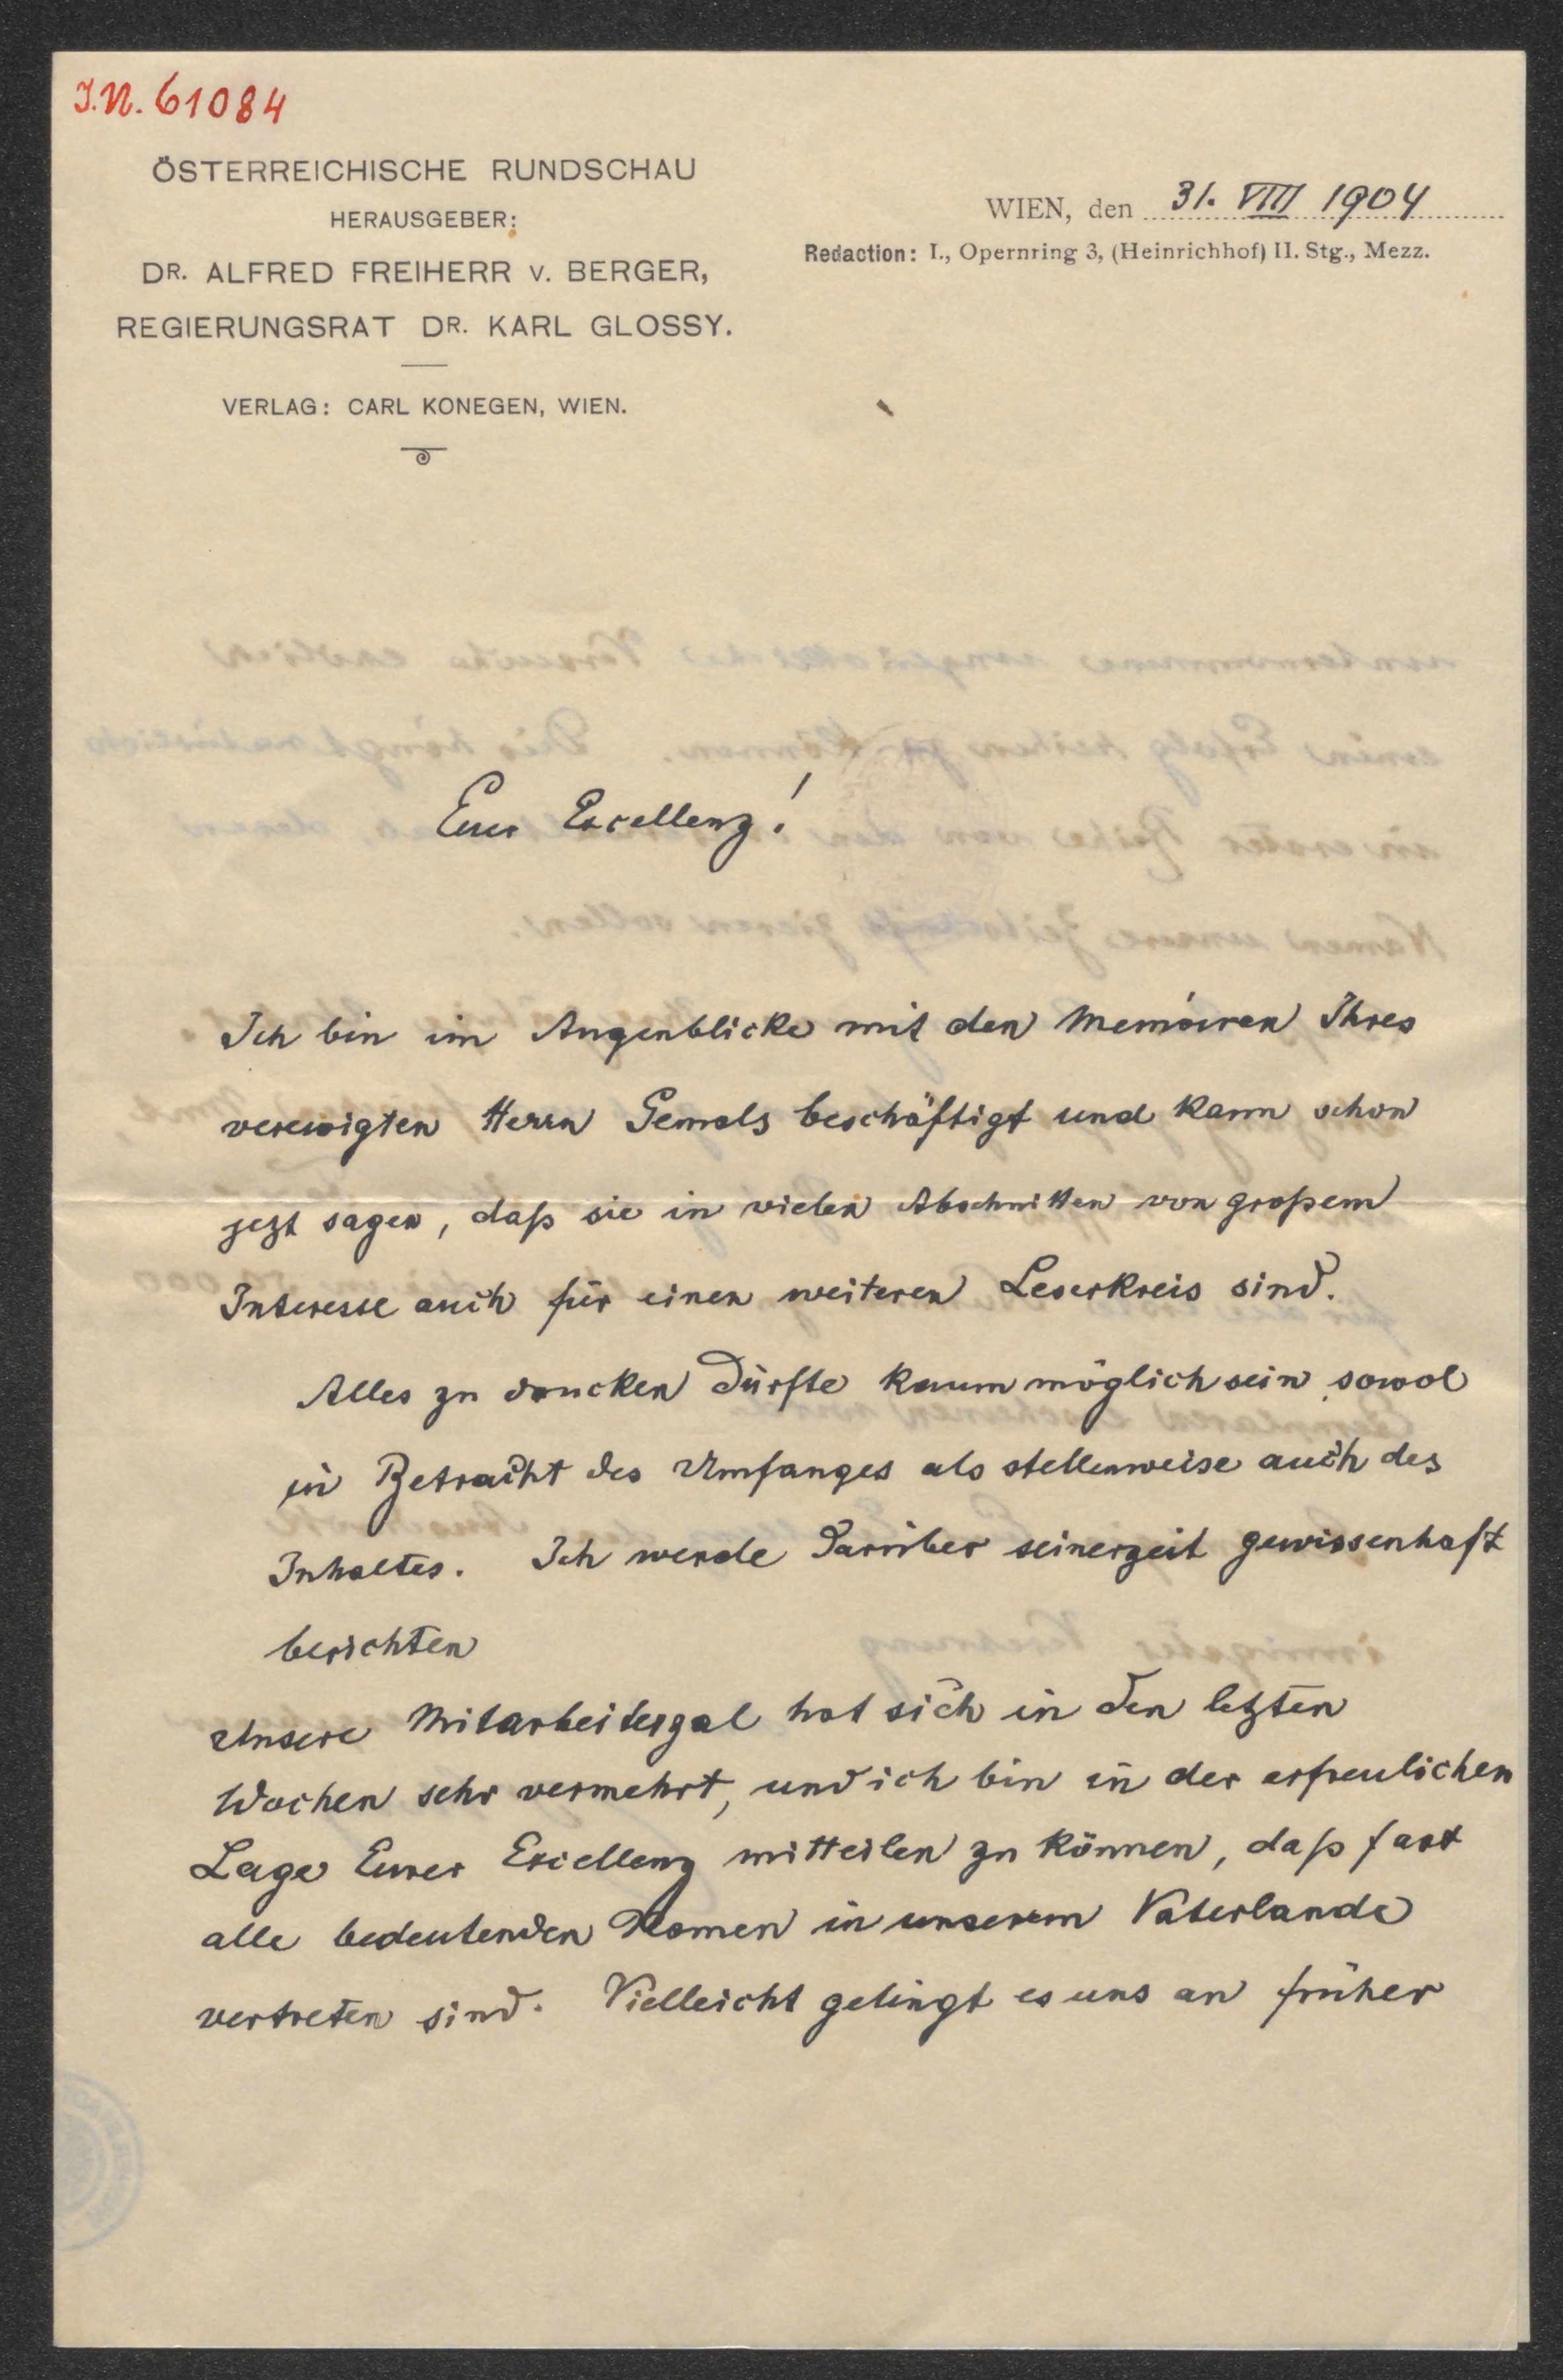 I.N. 61084
ÖSTERREICHISCHE RUNDSCHAU
HERAUSGEBER:
DR. ALFRED FREIHERR v. BERGER,
REGIERUNGSRAT DR. KARL GLOSSY.
VERLAG: CARL KONEGEN, WIEN.
WIEN, den 31. VIII 1904
Redaction: I., Opernring 3, (Heinrichhof) II. Stg., Mezz.
Euer Excellenz!
Ich bin im Augenblicke mit den Memoiren Ihres
verewigten Herrn Gemals beschäftigt und kann schon
jezt sagen, daß sie in vielen Abschnitten von großem
Interesse auch für einen weiteren Leserkreis sind.
Alles zu drucken dürfte kaum möglich sein sowol
in Betracht des Umfanges als stellenweise auch des
Inhaltes. Ich werde darüber seinerzeit gewissenhaft
berichten
Unsere Mitarbeiterzal hat sich in den letzten
Wochen sehr vermehrt, und ich bin in der erfreulichen
Lage Eurer Excellenz mitteilen zu können, daß fast
alle bedeutenden Namen in unserem Vaterlande
vertreten sind. Vielleicht gelingt es uns an früher